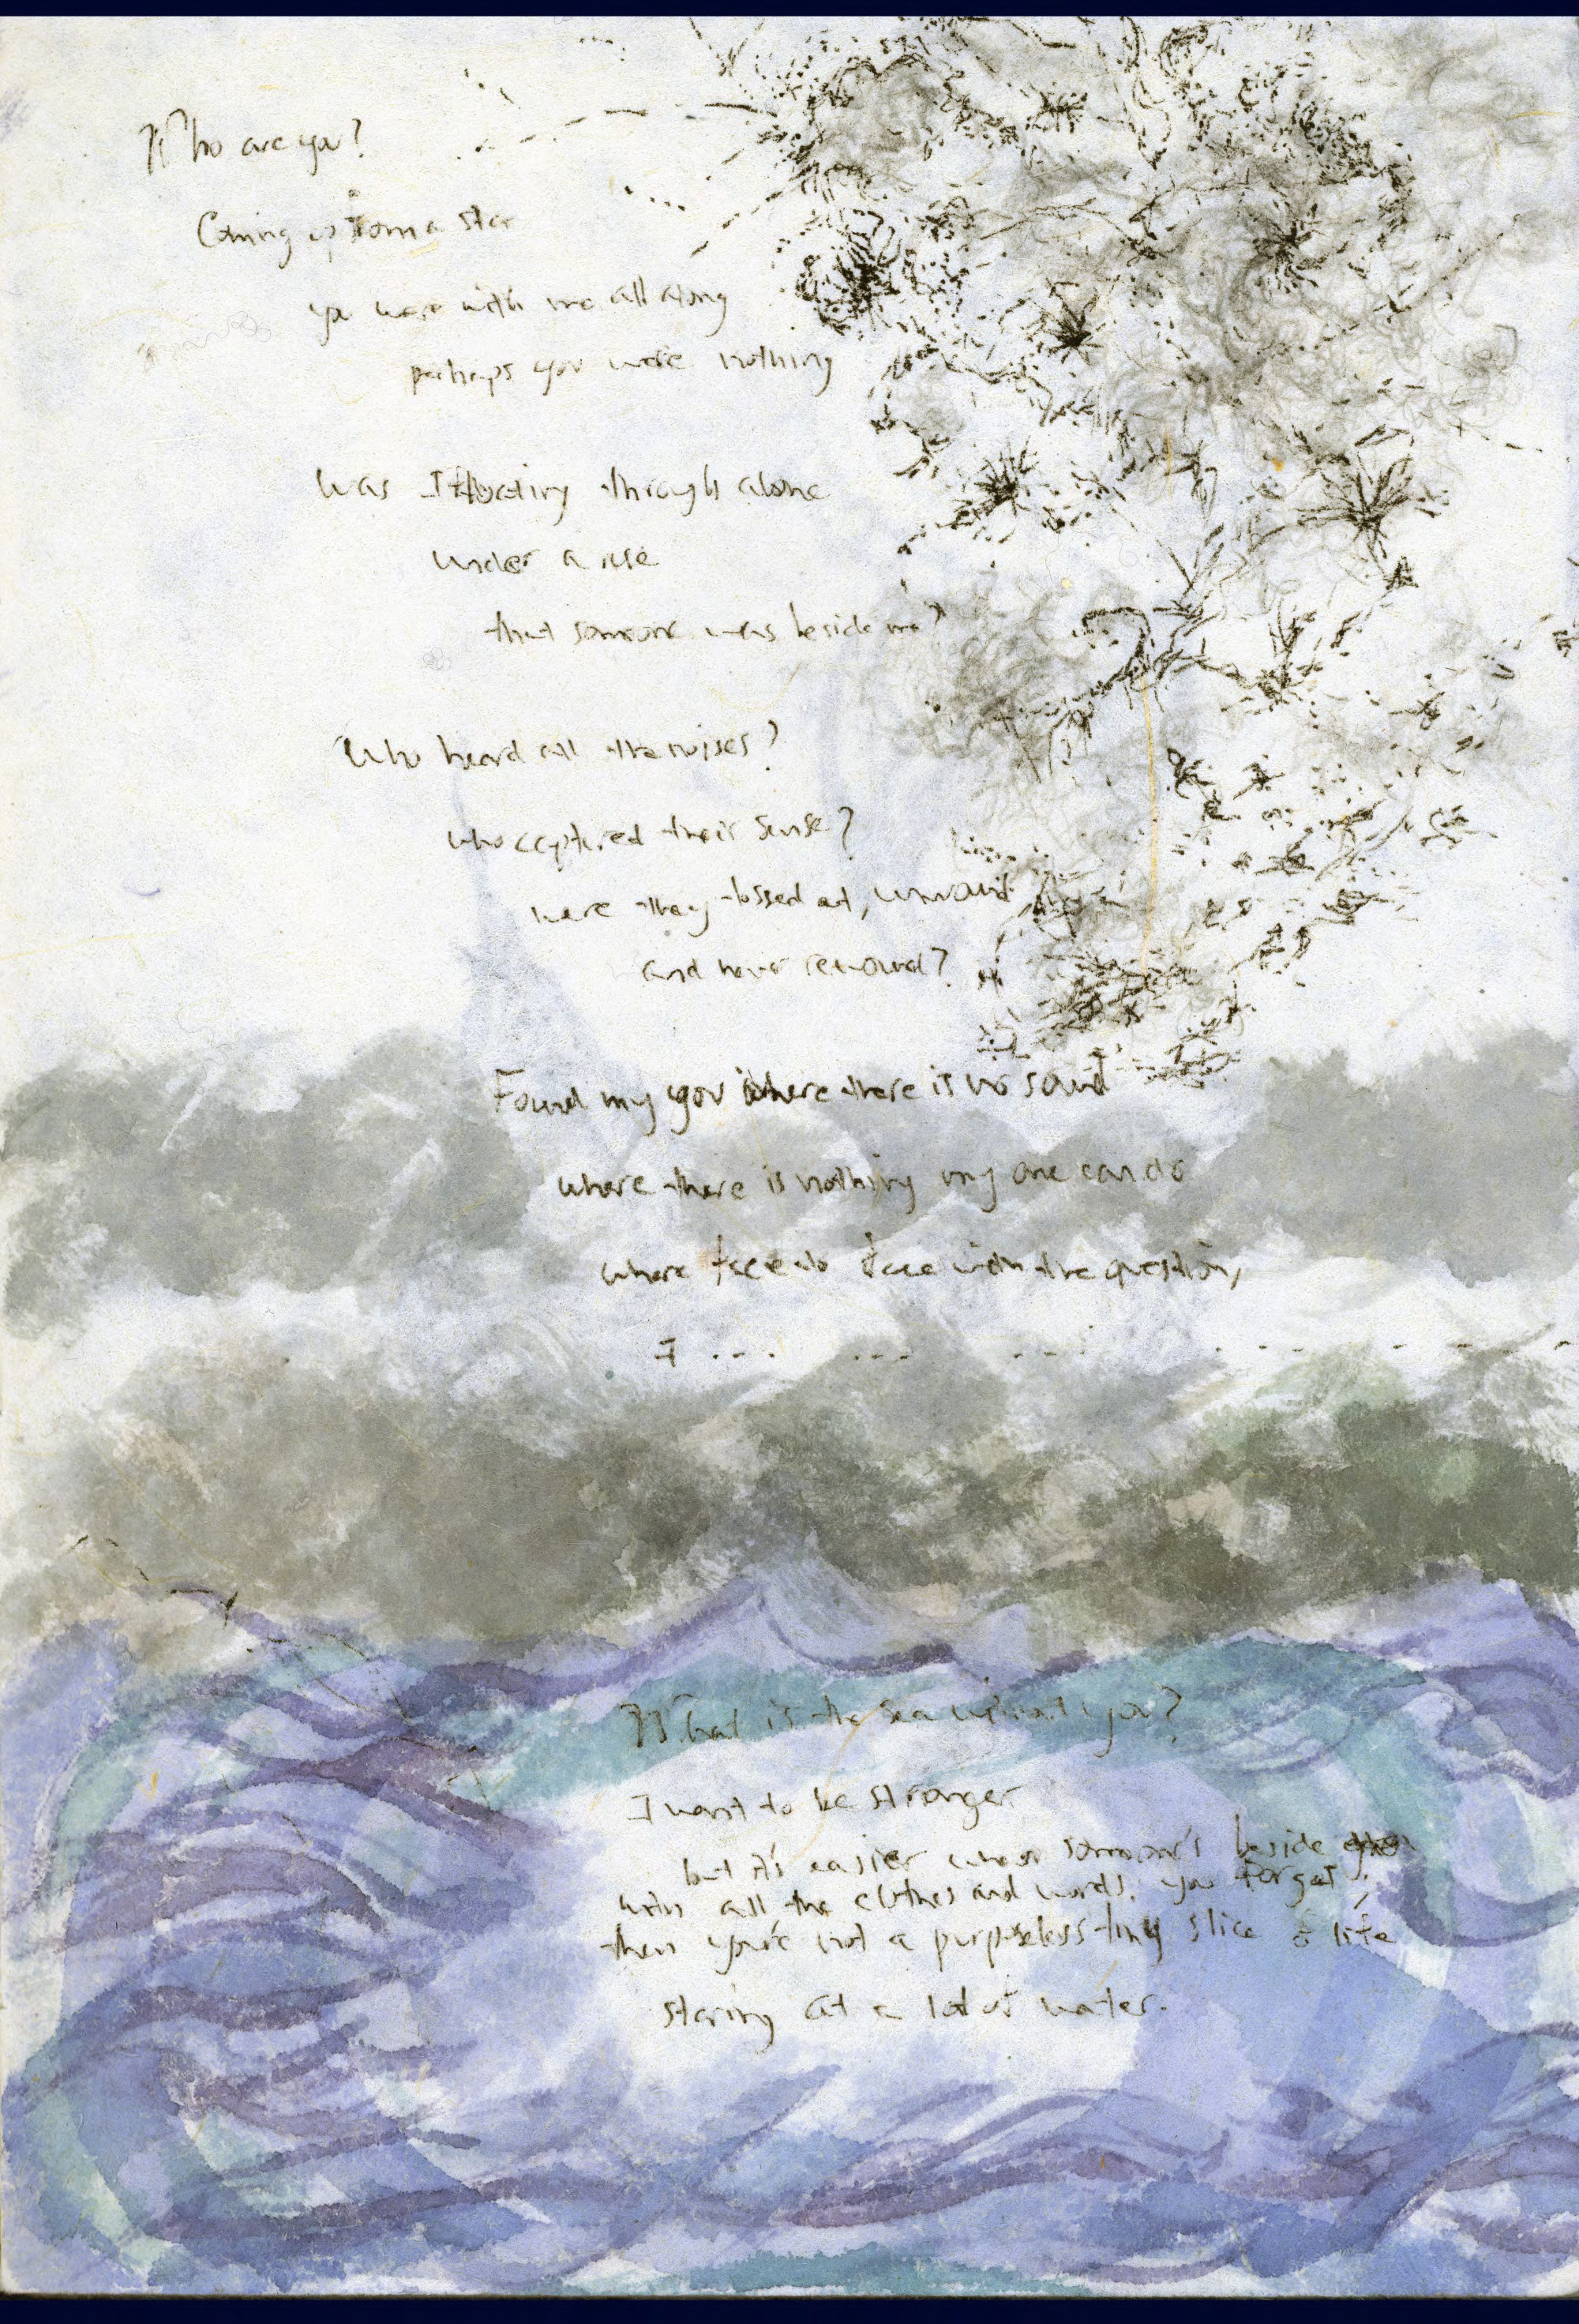 Who are you?
Coming up from a star
you were with me all along
perhaps you were nothing
Was I floating through alone
under a ruse
that someone was beside me?
Who heard all the noises?
who captured their sense?
were they tossed out, unwound
and never rewound?
Found my you where there is no sound
where there is nothing my one can do
where face to face with the question,
I ... ... ...
What is the sea without you?
I want to be stronger
but it's easier when someone's beside
with all the clothes and words, you forget
then you're not a purposeless tiny slice of life
staring at a lot of water.